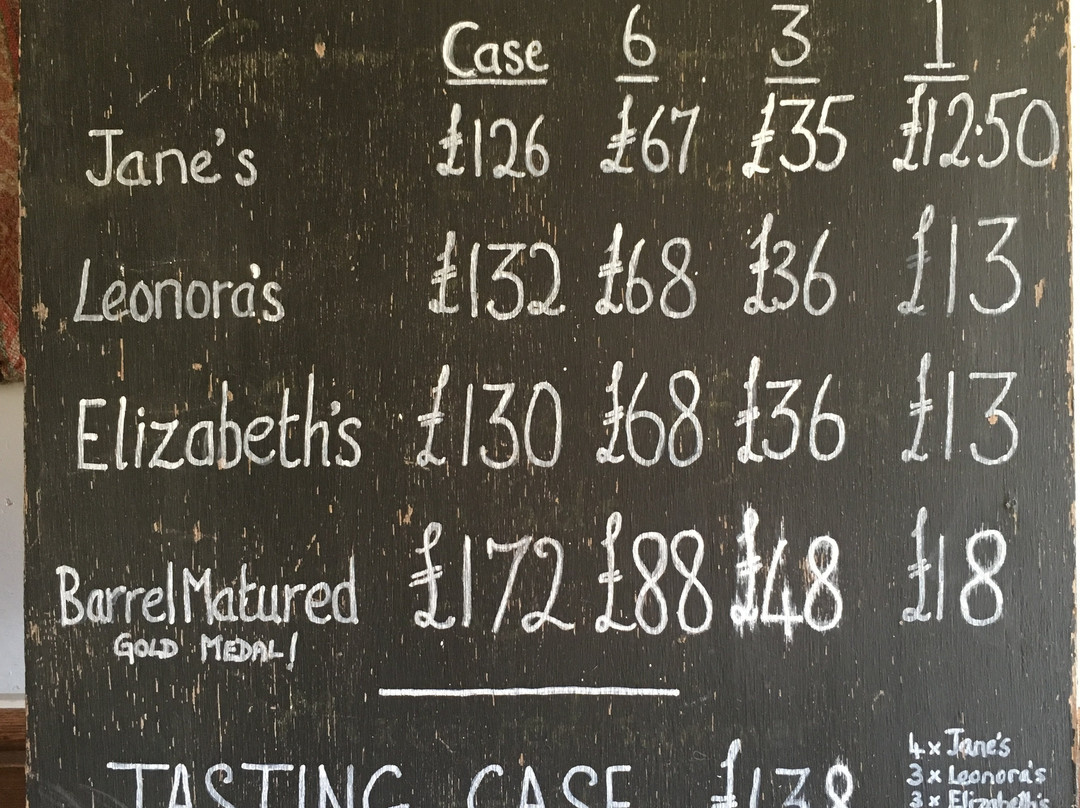 Case 6 3 1
Jane's £126 £67 £35 £12.50
Leonora's £132 £68 £36 £13
Elizabeth's £130 £68 £36 £13
Barrel Matured £172 £88 £48 £18
GOLD MEDAL!
TASTING CASE £138
4 x Jane's
3 x Leonora's
3 x Elizabeth's